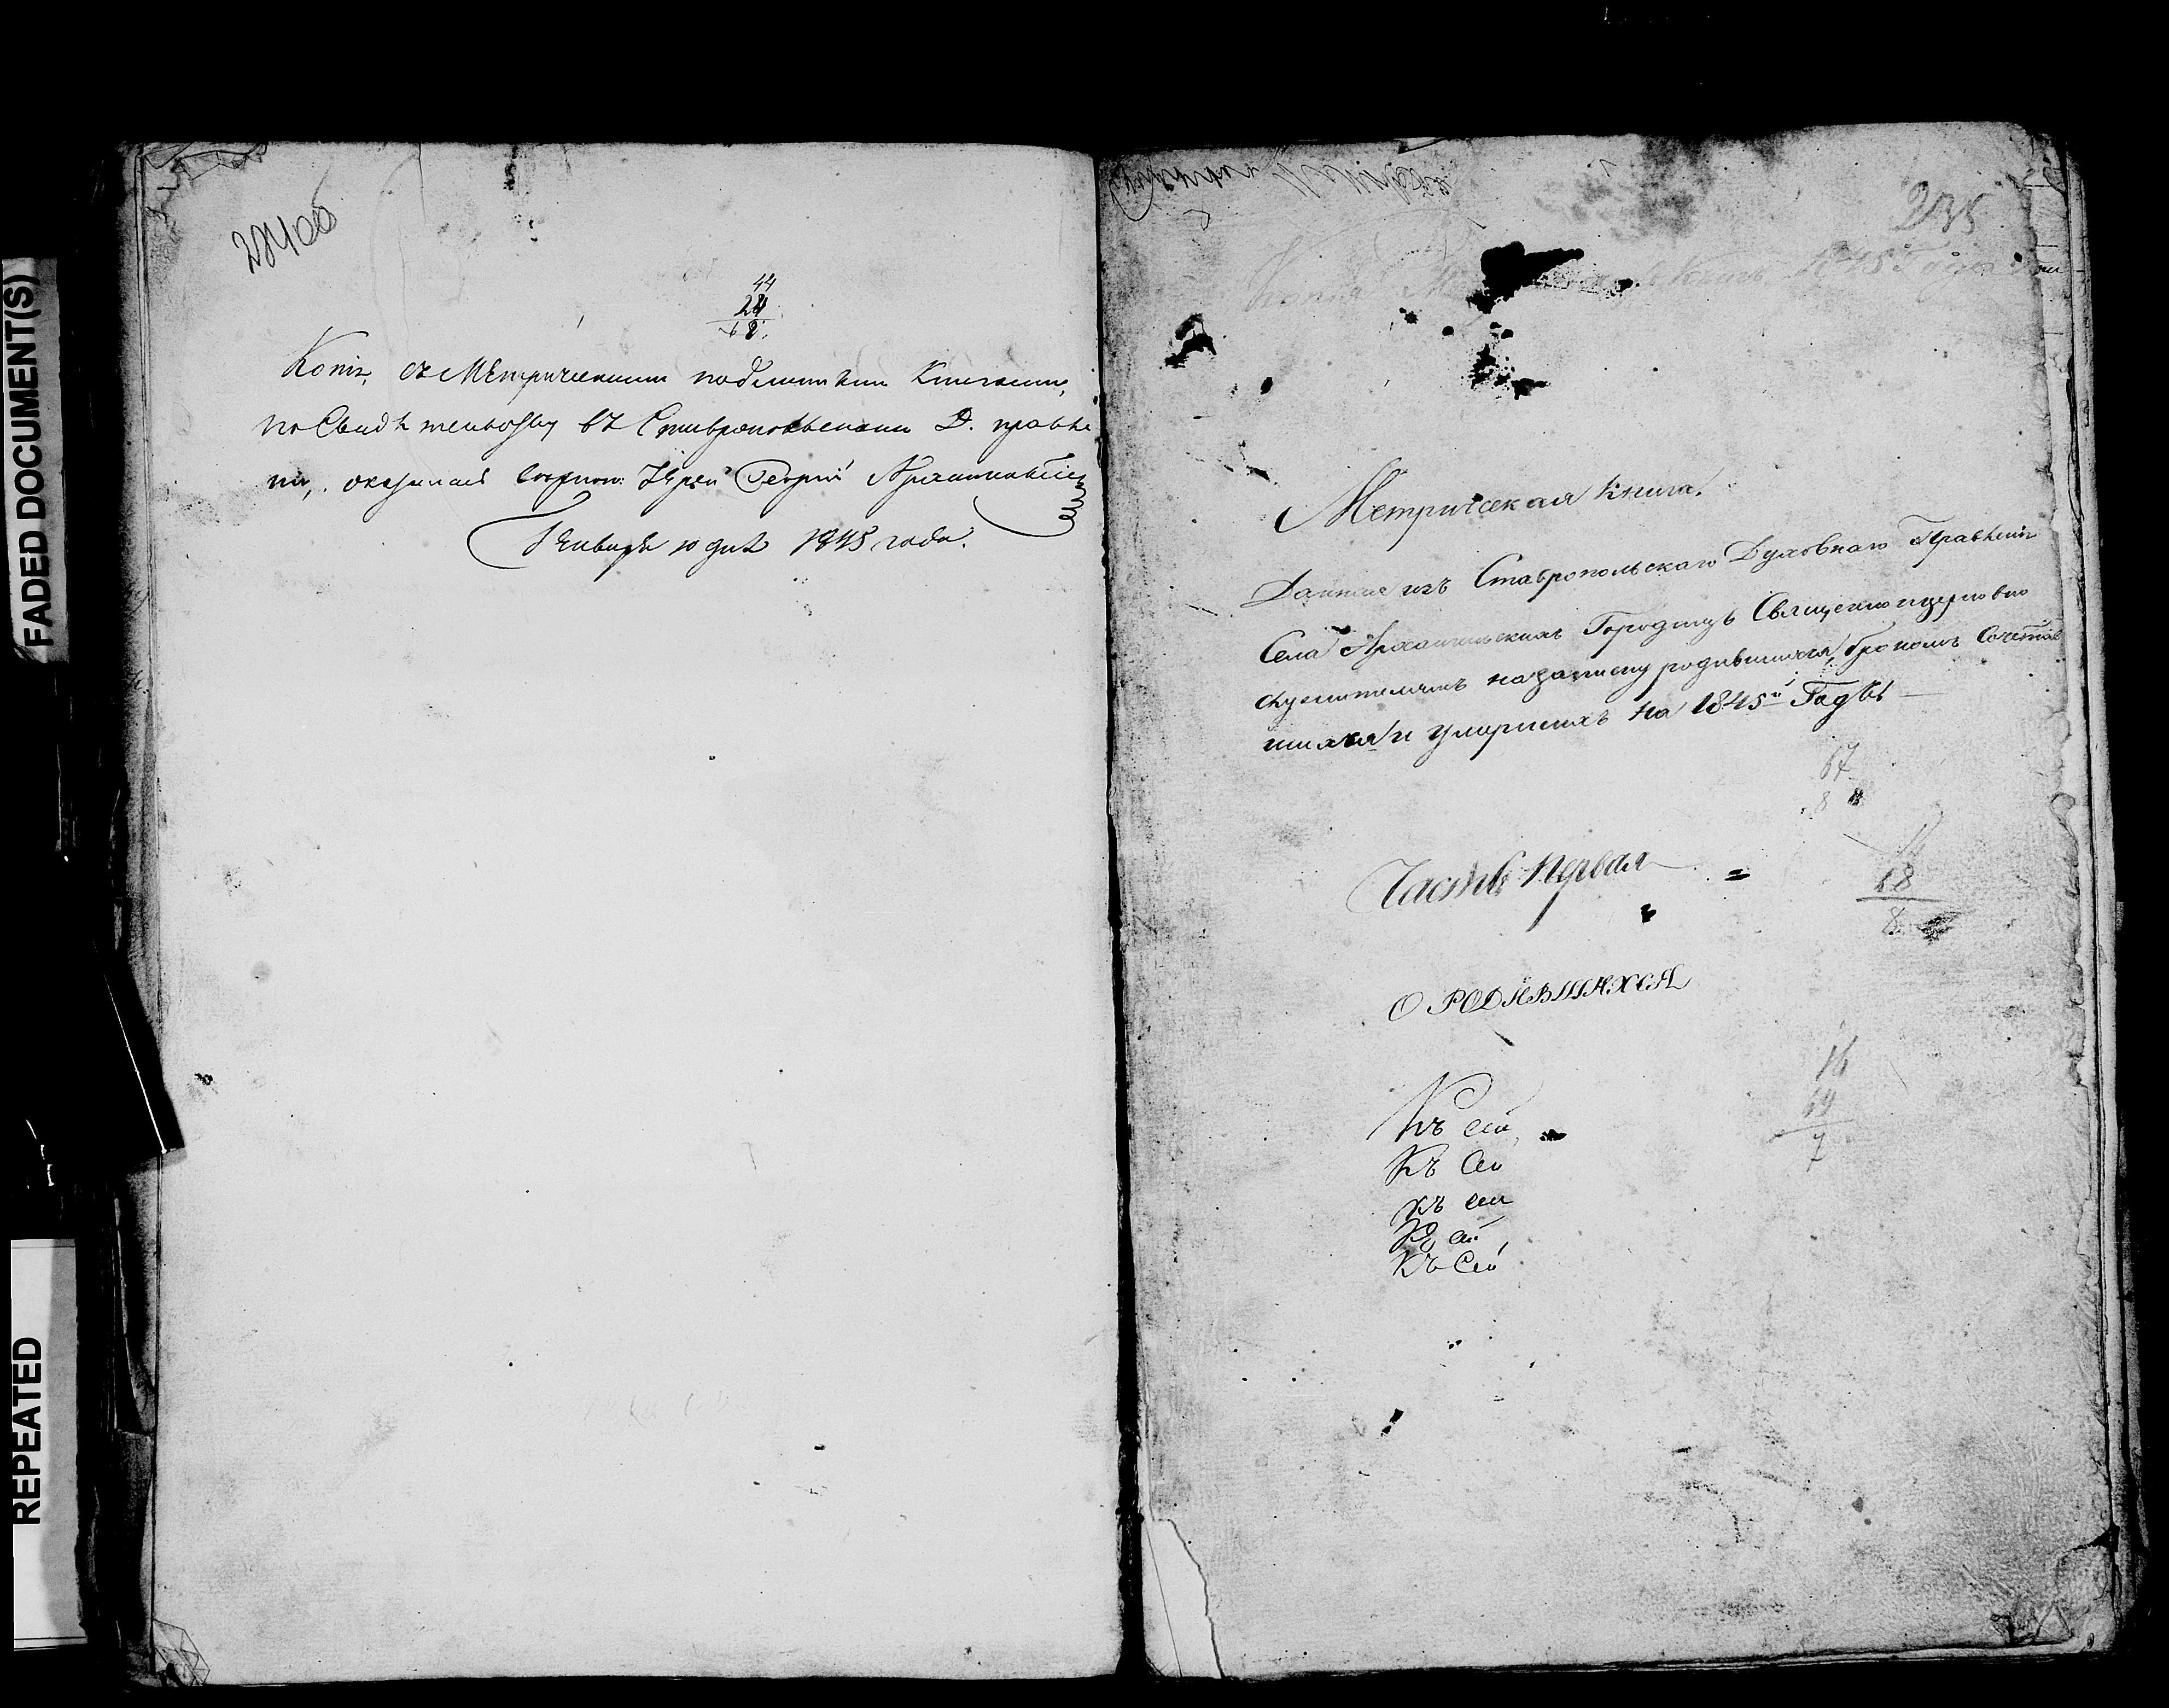 FADED DOCUMENT(S)
REPEATED
284об
44
24
68
Копія, съ Метрическими подлинными Книгами,
по Свидѣтельству въ Ставропольскомъ Д. правле
ніи, оказалась вѣрною: Іерей Георгій
Генваря 10 дня 1845 года.
235
Копія 1845 Года
Метрическая Книга.
Данная изъ Ставропольскаго Духовнаго Правленія
Села Архангельскихъ Городищъ Священноцерковно
служителямъ на записку родившихся, бракомъ Сочетав
шихся и умершихъ на 1845й Годъ
67
8
Часть Первая =
18
8
О РОДИВШИХСЯ
16
69
7
Къ сей
Къ Сей
Къ сей
Къ сей
Къ Сей